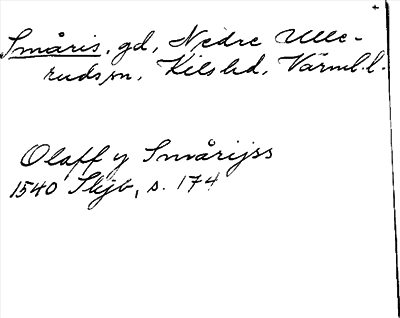 Småris, gd, Nedre Ulle-
ruds sn, Kils hd, Värml. l.
Olaff y Smårijss
1540 Skjb, s. 174